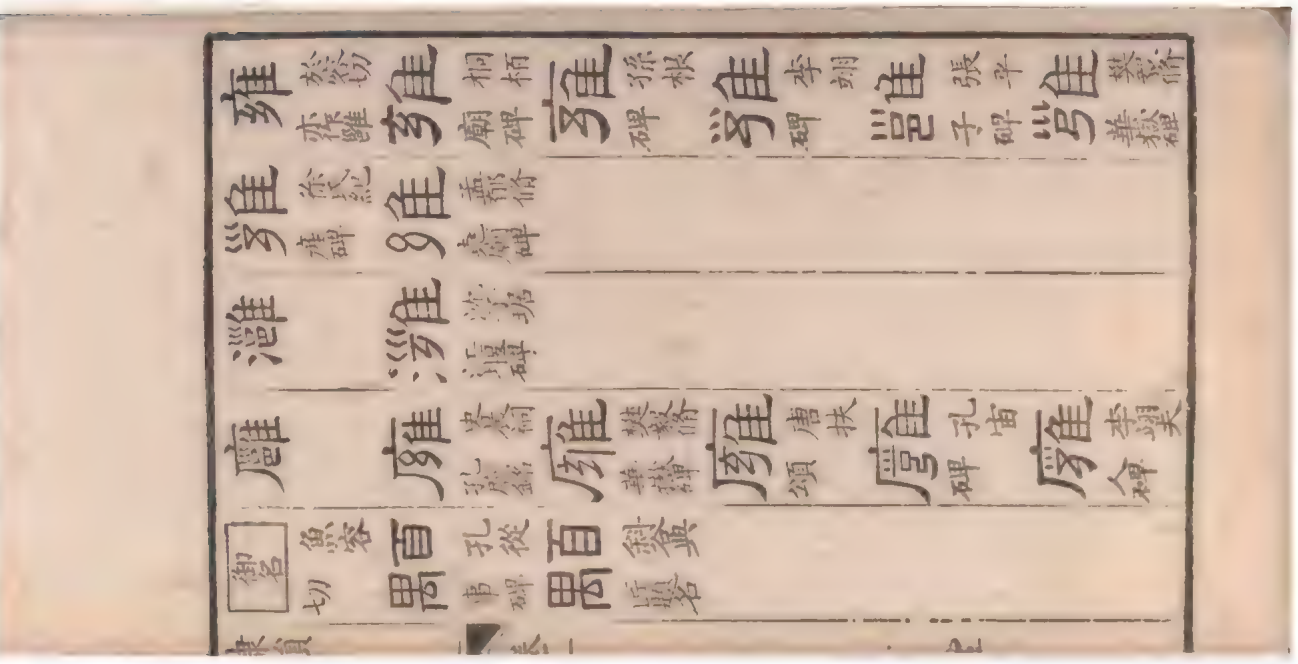 雍 於容切亦作雝 雍 桐栢廟碑 雍 孫根碑 雍 李翊碑 雝 張平子碑 雍 樊毅脩華嶽碑
雍 徐氏紀産碑 雍 孟郁脩堯廟碑
灉 灉 堰碑
廱 廱 史晨祠孔廟銘 廱 樊毅脩華嶽碑 廱 唐扶頌 廱 孔宙碑 廱 李翊夫人碑
御名 魚容切 顒 孔從事碑 顒 題名